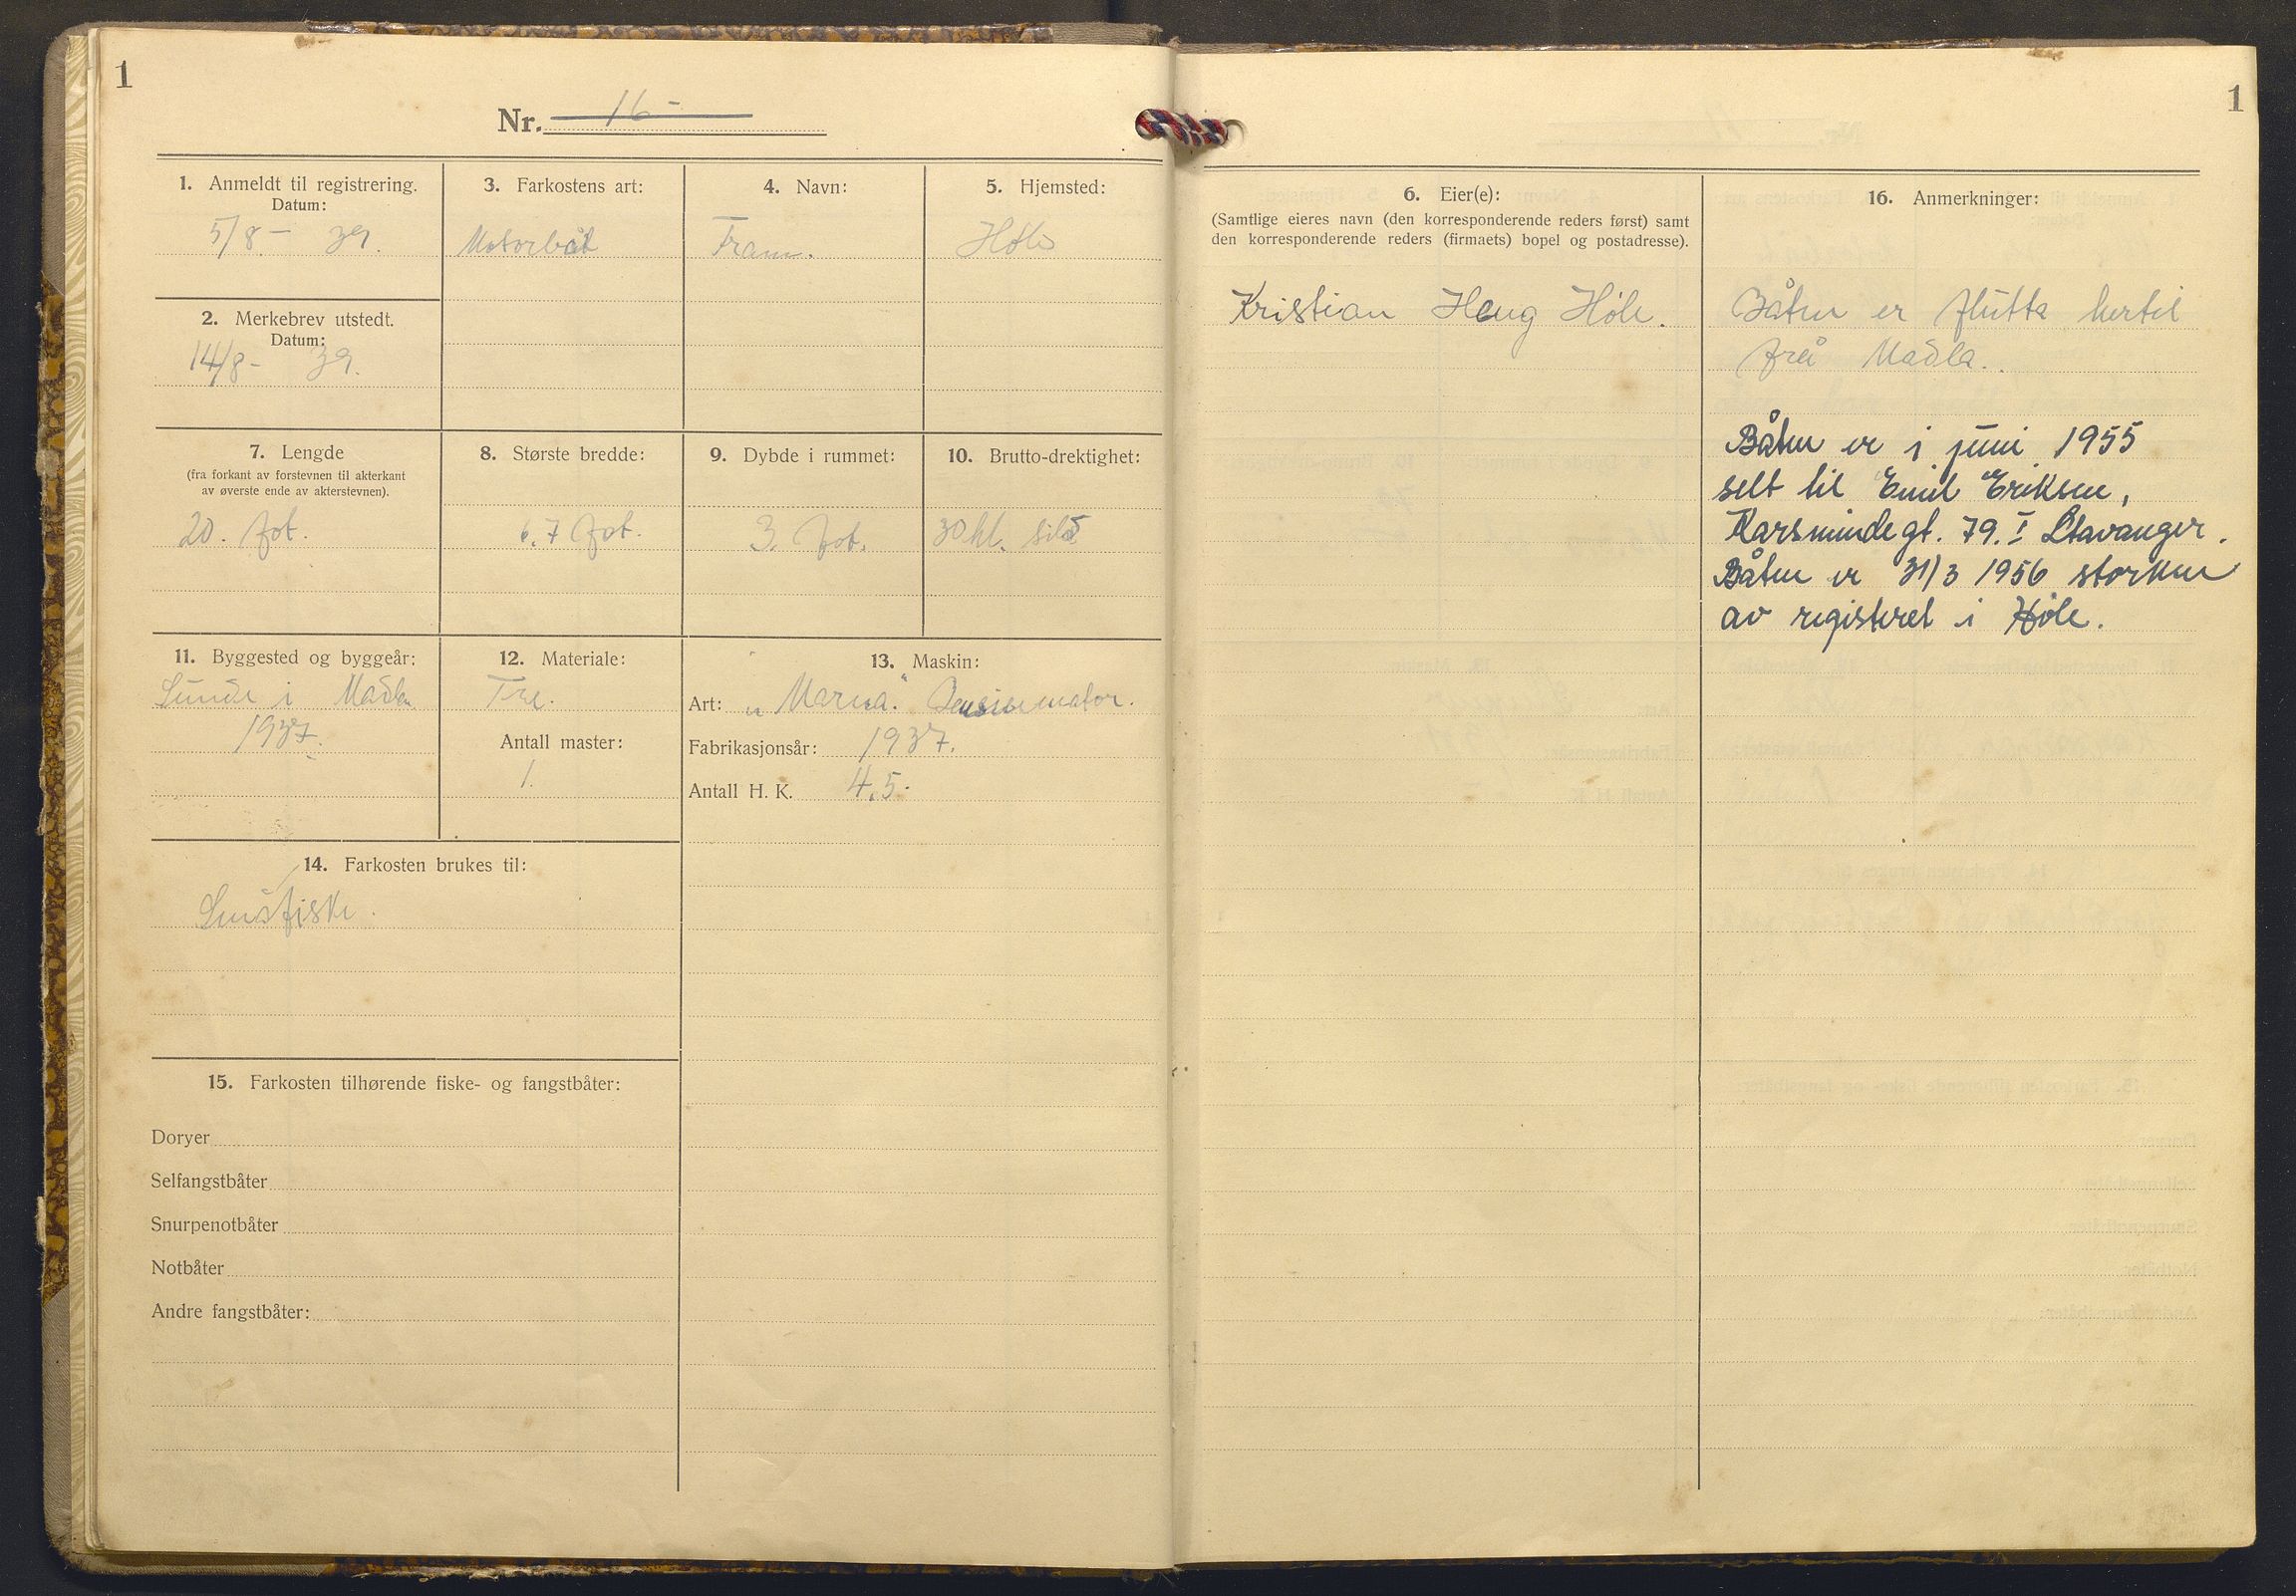 1
Nr. 16-
1. Anmeldt til registrering.
Datum:
5/8 - 39.
2. Merkebrev utstedt.
Datum:
14/8- 39.
3. Farkostens art:
Motorbåt
4. Navn:
Fram.
5. Hjemsted:
Høle
7. Lengde
(fra forkant av forstevnen til akterkant
av øverste ende av akterstevnen).
20. fot.
8. Største bredde:
6.7 fot.
9. Dybde i rummet:
3. fot.
10. Brutto-drektighet:
30 hl. sild
11. Byggested og byggeår:
Sunde i Madla
1937.
12. Materiale:
Tre.
Antall master:
1.
13. Maskin:
Art: „Marna" motor.
Fabrikasjonsår: 1937.
Antall H. K. 4,5.
14. Farkosten brukes til:
Småfiske.
15. Farkosten tilhørende fiske- og fangstbåter:
Doryer
Selfangstbåter
Snurpenotbåter
Notbåter
Andre fangstbåter:
1
6. Eier(e):
(Samtlige eieres navn (den korresponderende reders først) samt
den korresponderende reders (firmaets) bopel og postadresse).
Kristian Haug Høle.
16. Anmerkninger:
Båten er flutta hertil
frå Madla.
Båten er i juni 1955
selt til Emil Eriksen,
Karsmindegt. 79.I Stavanger.
Båten er 31/3 1956 stroken
av registeret i Høle.